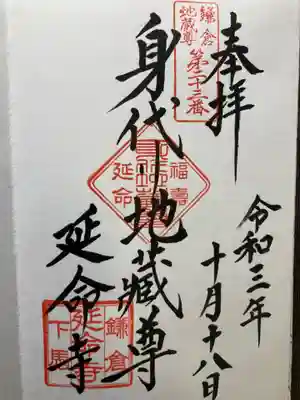 奉拝
令和三年
十月十八日
鎌倉
地蔵尊
第廿三番
身代り地蔵尊
福壽
延命
延命寺
鎌倉
延命寺
下馬